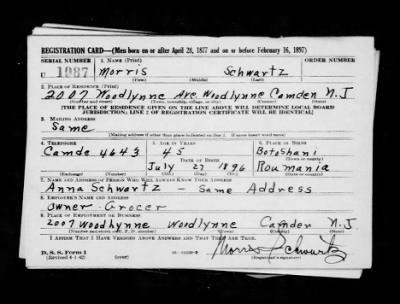 REGISTRATION CARD—(Men born on or after April 28, 1877 and on or before February 16, 1897)
SERIAL NUMBER 1. NAME (Print) ORDER NUMBER
U 1087 Morris Schwartz
(First) (Middle) (Last)
2. PLACE OF RESIDENCE (Print)
2007 Woodlynne Ave. Woodlynne Camden N.J
(Number and street) (Town, township, village, or city) (County) (State)
[THE PLACE OF RESIDENCE GIVEN ON THE LINE ABOVE WILL DETERMINE LOCAL BOARD
JURISDICTION; LINE 2 OF REGISTRATION CERTIFICATE WILL BE IDENTICAL]
3. MAILING ADDRESS
Same
[Mailing address if other than place indicated on line 2. If same insert word same]
4. TELEPHONE 5. AGE IN YEARS 6. PLACE OF BIRTH
Camde 4643 45 Botoshani
DATE OF BIRTH (Town or county)
July 27 1896 Roumania
(Mo.) (Day) (Yr.) (State or country)
7. NAME AND ADDRESS OF PERSON WHO WILL ALWAYS KNOW YOUR ADDRESS
Anna Schwartz - Same Address
8. EMPLOYER'S NAME AND ADDRESS
Owner - Grocer
9. PLACE OF EMPLOYMENT OR BUSINESS
2007 Woodlynne Woodlynne Camden N.J.
(Number and street or R. F. D. number) (Town) (County) (State)
I AFFIRM THAT I HAVE VERIFIED ABOVE ANSWERS AND THAT THEY ARE TRUE.
D. S. S. Form 1 Morris Schwartz
(Revised 4-1-42) (Registrant's signature)